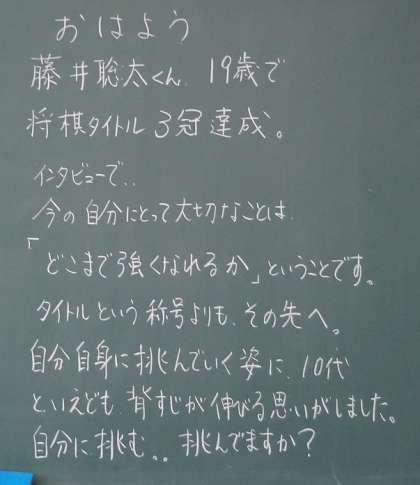 おはよう
藤井聡太くん、19歳で
将棋タイトル3冠達成。
インタビューで‥
今の自分にとって大切なことは、
「どこまで強くなれるか」ということです。
タイトルという称号よりも、その先へ。
自分自身に挑んでいく姿に、10代
といえども、背すじが伸びる思いがしました。
自分に挑む‥挑んでますか?